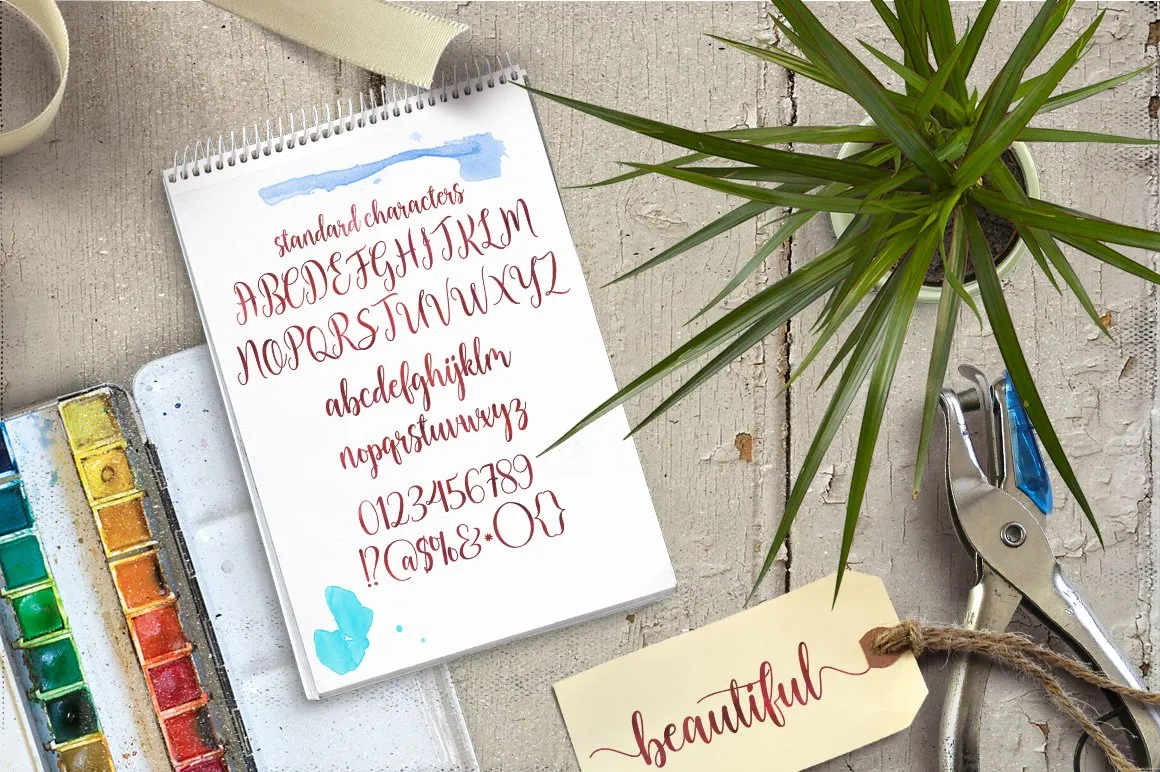 standard characters
ABCDEFGHIJKLM
NOPQRSTUVWXYZ
abcdefghijklm
nopqrstuvwxyz
0123456789
!?@$%&*(){}
beautiful